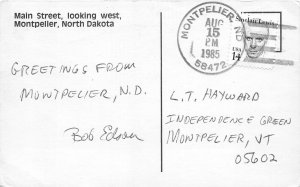 Main Street, looking west,
Montpelier, North Dakota
MONTPELIER, ND
AUG
15
PM
1985
58472
Sinclair Lewis
USA
14
GREETINGS FROM
MONTPELIER, N.D.
Bob Edson
L.T. HAYWARD
INDEPENDENCE GREEN
MONTPELIER, VT
05602